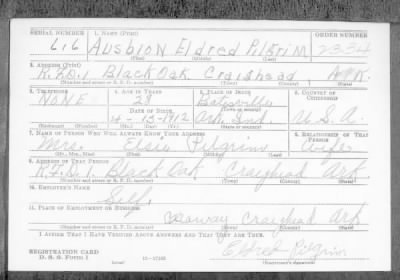 SERIAL NUMBER 1. NAME (Print) ORDER NUMBER
616 Ausbion Eldred Pilgrim 2334
(First) (Middle) (Last)
2. ADDRESS (Print)
R.F.D.1 Black Oak Craighead Ark.
(Number and street or R. F. D. number) (Town) (County) (State)
3. TELEPHONE 4. AGE IN YEARS 5. PLACE OF BIRTH 6. COUNTRY OF CITIZENSHIP
NONE 28 Batesville
DATE OF BIRTH (Town or county)
4-13-1912 Ark. Ind. U.S.A.
(Exchange) (Number) (Mo.) (Day) (Yr.) (State or country)
7. NAME OF PERSON WHO WILL ALWAYS KNOW YOUR ADDRESS 8. RELATIONSHIP OF THAT PERSON
Mrs. Elsie Pilgrim Wife
(Mr., Mrs., Miss) (First) (Middle) (Last)
9. ADDRESS OF THAT PERSON
R.F.D.1. Black Oak Craighead Ark.
(Number and street or R. F. D. number) (Town) (County) (State)
10. EMPLOYER'S NAME
Self.
11. PLACE OF EMPLOYMENT OR BUSINESS
Craighead Ark
(Number and street or R. F. D. number) (Town) (County) (State)
I AFFIRM THAT I HAVE VERIFIED ABOVE ANSWERS AND THAT THEY ARE TRUE.
REGISTRATION CARD
D. S. S. Form 1 (over) 16-17105 Pilgrim
(Registrant's signature)